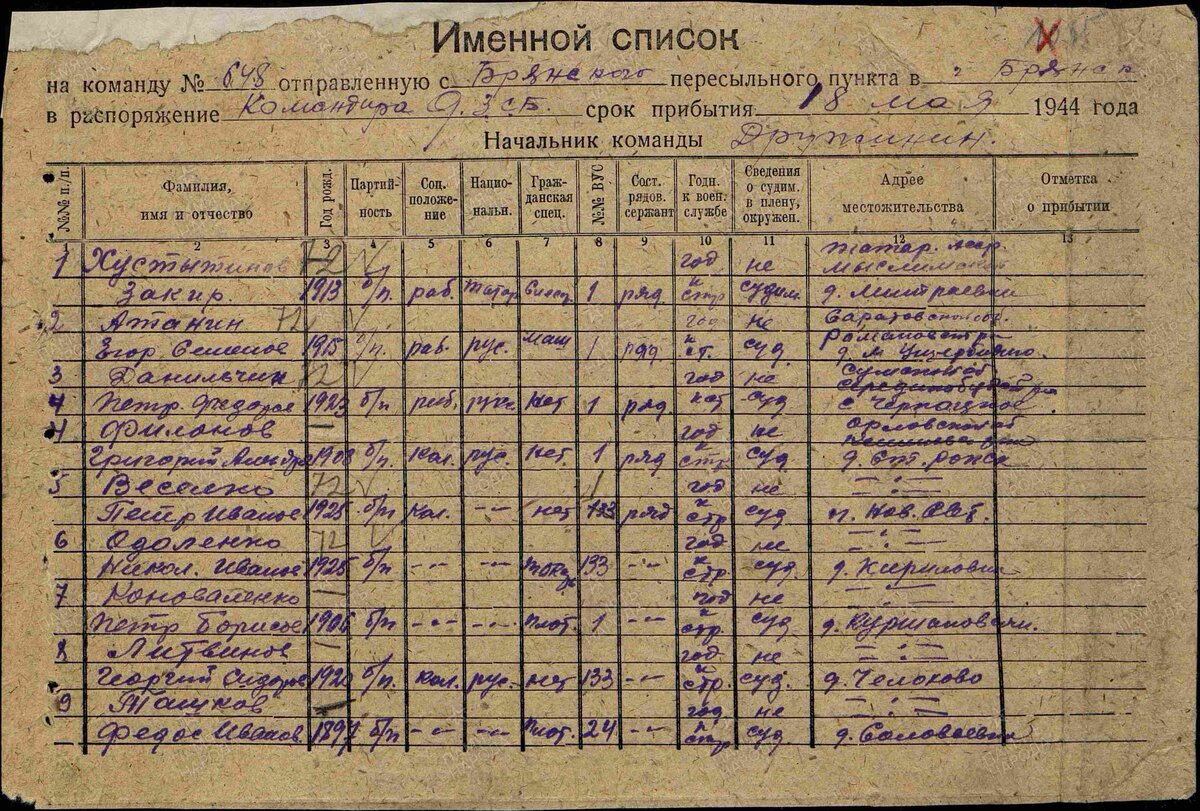 Именной список
на команду № 648 отправленную с Брянского пересыльного пункта в г Брянск
в распоряжение Командира 9.З.сБ. срок прибытия 18 мая 1944 года
Начальник команды Дружинин.
№№ п/п. Фамилия, имя и отчество Год рожд. Партийность Соц. положение Национальн. Гражданская спец. №№ ВУС Сост. рядов. сержант Годн. к воен. службе Сведения о судим. в плену, окружен. Адрес местожительства Отметка о прибытии
2 3 4 5 6 7 8 9 10 11 12 13
1 Хустытинов 72 год не татар. асср.
Закир. 1913 б/п. раб. татар 1 ряд к стр судим д.
2 Атанин 72 год не Саратовской об.
Егор Семенов 1915 б/п. раб. рус. маш 1 ряд к ст. суд
3 Данильчик 72 год не Сумской об
4 Петр Федоров 1923 б/п раб. русс нет 1 ряд суд с.
4 Филонов — год не Орловской об
Григорий 1908 б/п. Кол. рус. нет. 1 ряд к стр суд д.
5 Веселко 72 год не — " —
Петр Иванов 1925 б/п Кол. -"- нет 133 ряд к стр суд п. Нов.
6 Одоленко 72 год не — " —
Никол. Иванов 1925 б/п -"- -"- токар 133 -"- к стр суд. д. Кириловка
7 Коноваленко — год не — " —
Петр Борисов 1906 б/п -"- -"- плот. 1 -"- к стр. суд д.
8 Литвинов — год не — " —
Георгий Сидоров б/п. Кол. рус. нет 133 -"- к стр. суд. д. Челохово
9 Ташков — год не — " —
Федос Иванов. 1897 б/п -"- -"- плот. 24 -"- к стр суд. д.